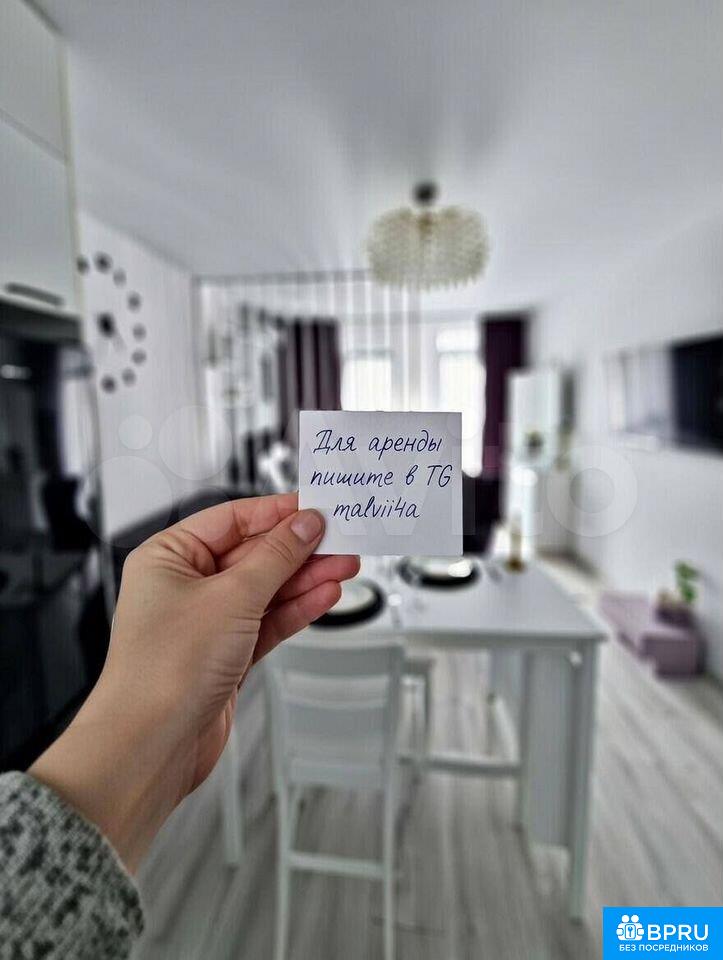 Для аренды
пишите в TG
malvii4a
Avito
BPRU
БЕЗ ПОСРЕДНИКОВ